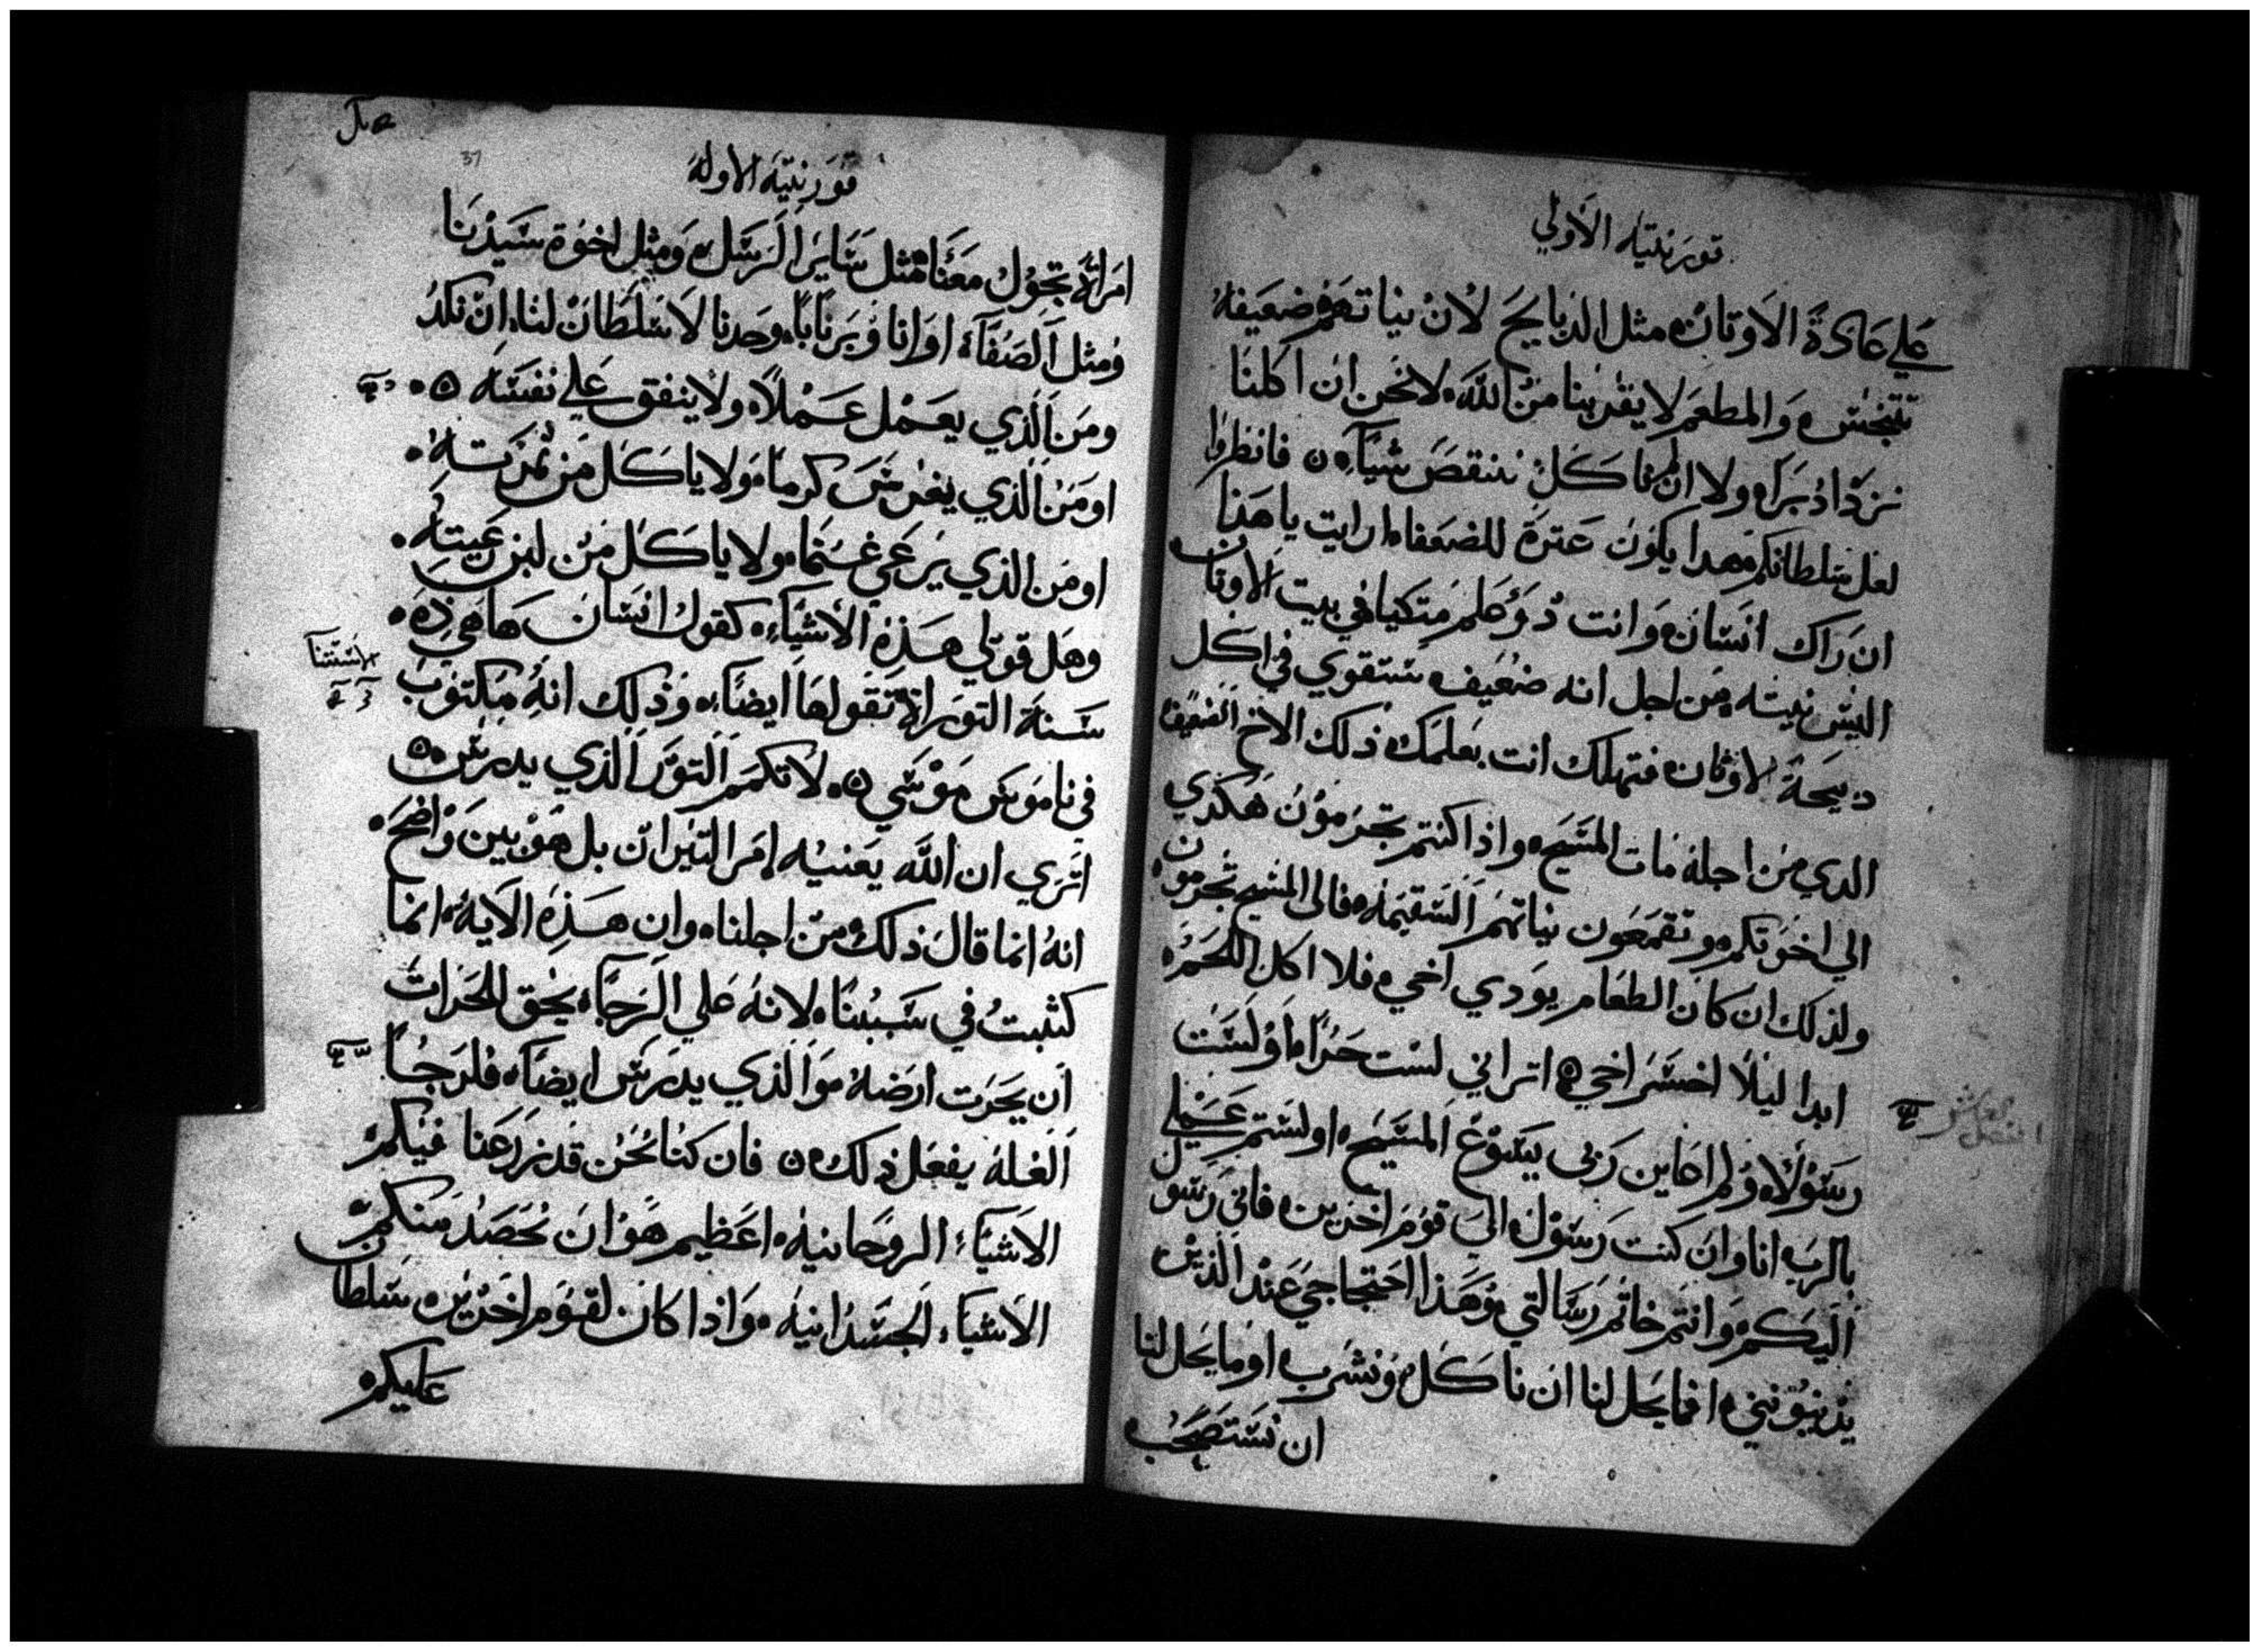 قورنتيه الاولي
علي عادة الاوتان مثل الدبايح لان نياتهم ضعيفه
تتنجس والمطعم لا يقربنا من الله لا نحن ان اكلنا
نزداد برا ولا ان لم ناكل ننتقص شيا فانظروا
لعل سلطانكم هدا يكون عترة للضعفاء ارايت يا هذا
ان راك انسان وانت دو علم متكيا في بيت الاوتان
اليس نيته من اجل انه ضعيف ستقوي في اكل
دبيحة الاوثان فتهلك انت بعلمك ذلك الاخ الضعيف
الدي من اجله مات المسيح واذا كنتم تجرمون هكذي
الي اخوتكم وتقمعون نياتهم السقيمه فالى المسيح تجرمون
ولذلك ان كان الطعام يودي اخي فلا اكل اللحم
ابدا ليلا اخسر اخي اتراني لست حرا او لست
رسولا ولم اعاين ربي يسوع المسيح او لستم عملي
بالرب انا وان كنت رسول الي قوم اخرين فاني رسول
اليكم وانتم خاتم رسالتي وهذا احتجاجي عند الذين
يدينونني افما يحل لنا ان ناكل ونشرب او ما يحل لنا
ان نستصحب
قورنتيه الاوله
37
امراة تجول معنا مثل ساير الرسل ومثل اخوة سيدنا
ومثل الصفا او انا وبرنابا وحدنا لا سلطان لنا ان نكد
ومن الذي يعمل عملا ولا ينفق علي نفسه
او من الذي يغرس كرما ولا ياكل من ثمرته
او من الذي يرعي غنما ولا ياكل من لبن رعيته
وهل قولي هذه الاشياء كقول انسان ها هي ذه
سنة التوراة تقولها ايضا وذلك انه مكتوب
الاستثنا
في ناموس موسي لا تكمم التور الذي يدرس
اتري ان الله يعنيه امر التيران بل هو بين واضح
انه انما قال ذلك من اجلنا وان هذه الايه انما
كتبت في سببنا لانه علي الرجا يحق للحرات
ان يحرت ارضه والذي يدرس ايضا فلرجا
الغله يفعل ذلك فان كنا نحن قد زرعنا فيكم
الاشياء الروحانيه اعظيم هو ان نحصد منكم
الاشياء الجسدانيه واذا كان لقوم اخرين سلطان
عليكم